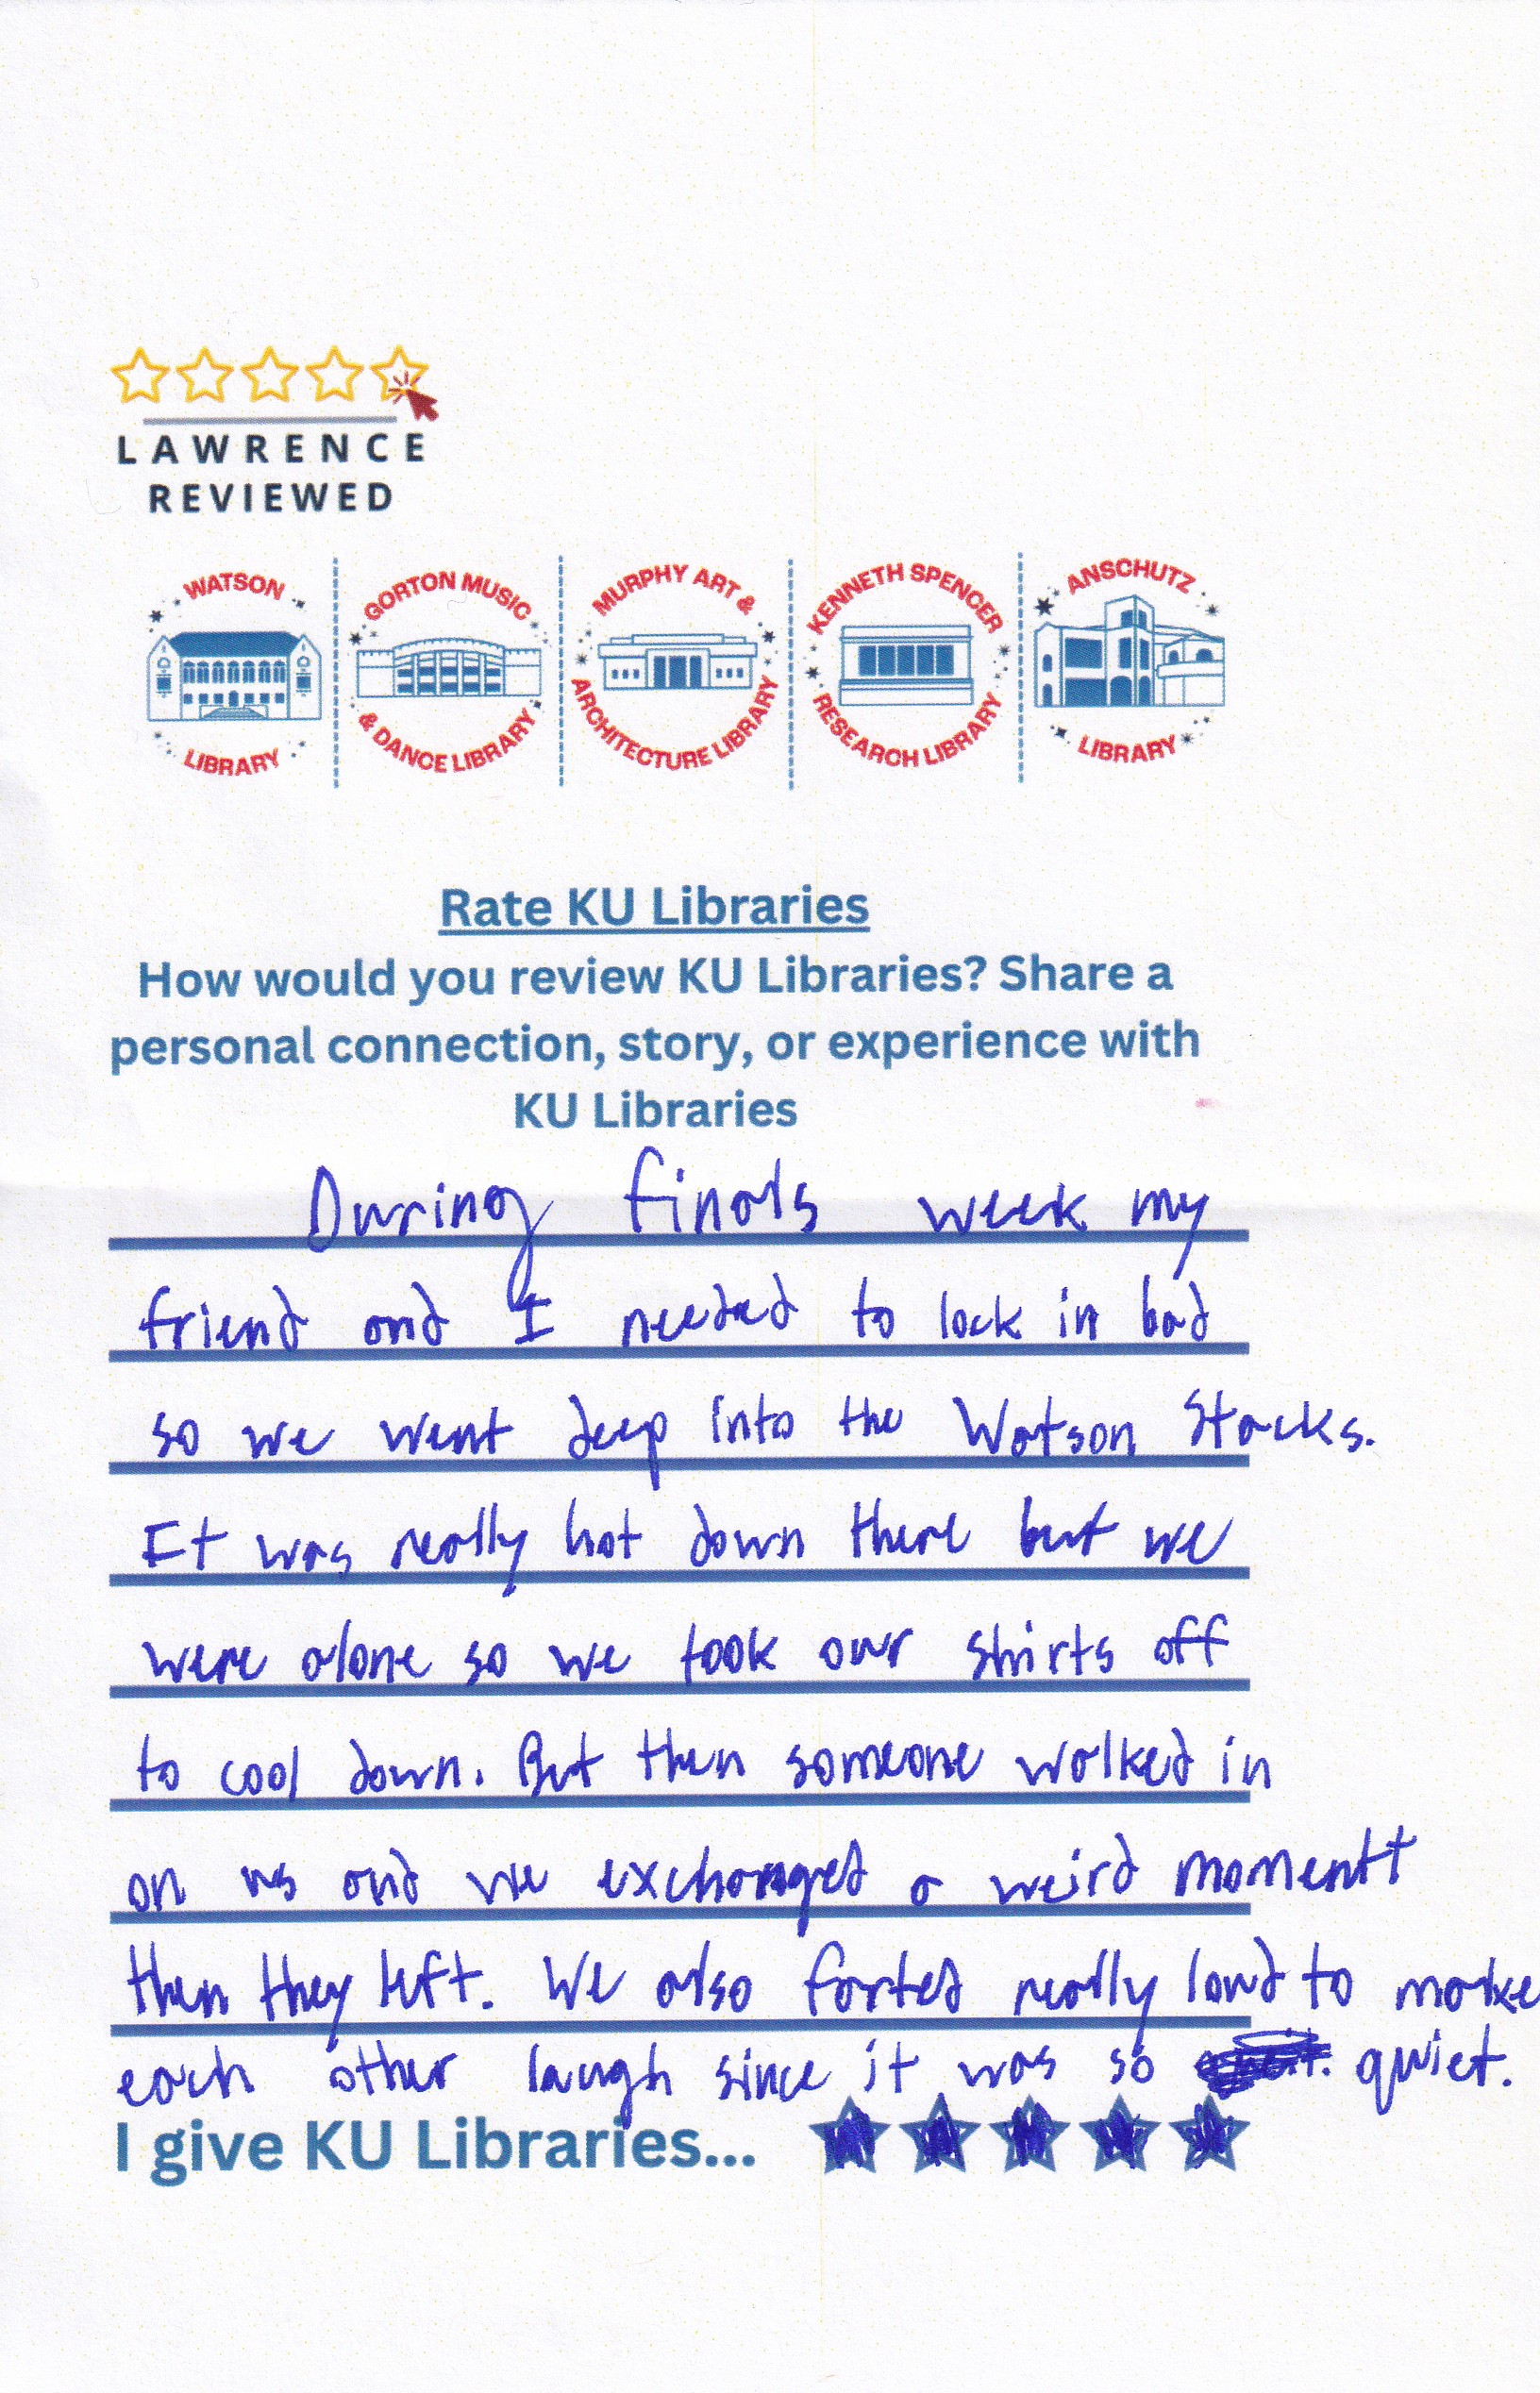 LAWRENCE
REVIEWED
WATSON LIBRARY
GORTON MUSIC & DANCE LIBRARY
MURPHY ART & ARCHITECTURE LIBRARY
KENNETH SPENCER RESEARCH LIBRARY
ANSCHUTZ LIBRARY
Rate KU Libraries
How would you review KU Libraries? Share a
personal connection, story, or experience with
KU Libraries
During finals week my
friend and I needed to lock in bad
so we went deep into the Watson Stacks.
It was really hot down there but we
were alone so we took our shirts off
to cool down. But then someone walked in
on us and we exchanged a weird momentt
then they left. We also farted really loud to make
each other laugh since it was so quiet.
I give KU Libraries...